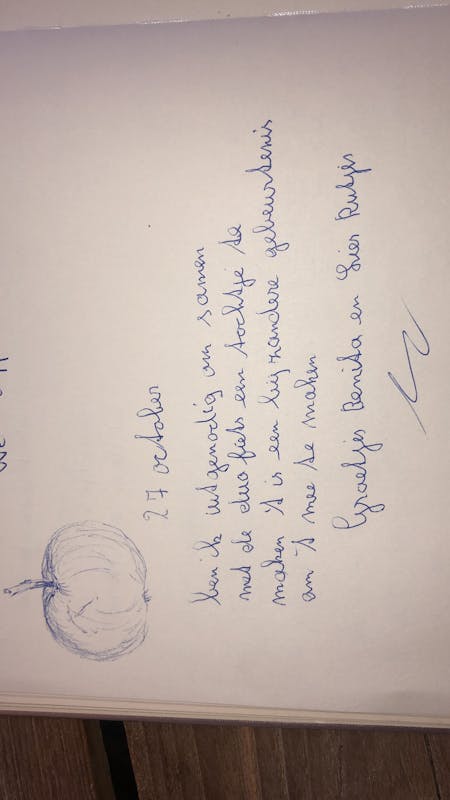 27 october
ben ik uitgenodig om samen
met de duo fiets een tochtje te
maken 't is een bijzondere gebeurtenis
om 't mee te maken
Groetjes Benita en Sier Rutjes